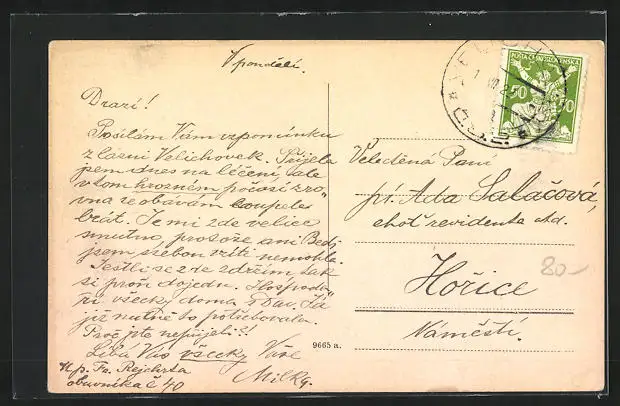 V pondělí.
Drazí!
Posílám Vám vzpomínku
z lázní Velichovek. Přijela
jsem dnes na léčení, ale
v tom hrozném počasí zro„
vna se obávám koupele
brát. Je mi zde velice
smutno, protože ani Bedř.
jsem sebou vzíti nemohla.
Jestli se zde zdržím, tak
si proň dojedu. Hospoda„
ří všecky doma s Já
již nutně to potřebovala.
Proč jste nepřijeli?!
Líbá Vás všecky Vaše
Milka.
N p. Fr. Rejchrta
obuvníka č 40
POŠTA ČESKOSLOVENSKÁ
50 50
Veleděná Paní
pí. Ada Salačová,
choť revidenta atd.
Hořice
Náměstí.
80-
9665 a.